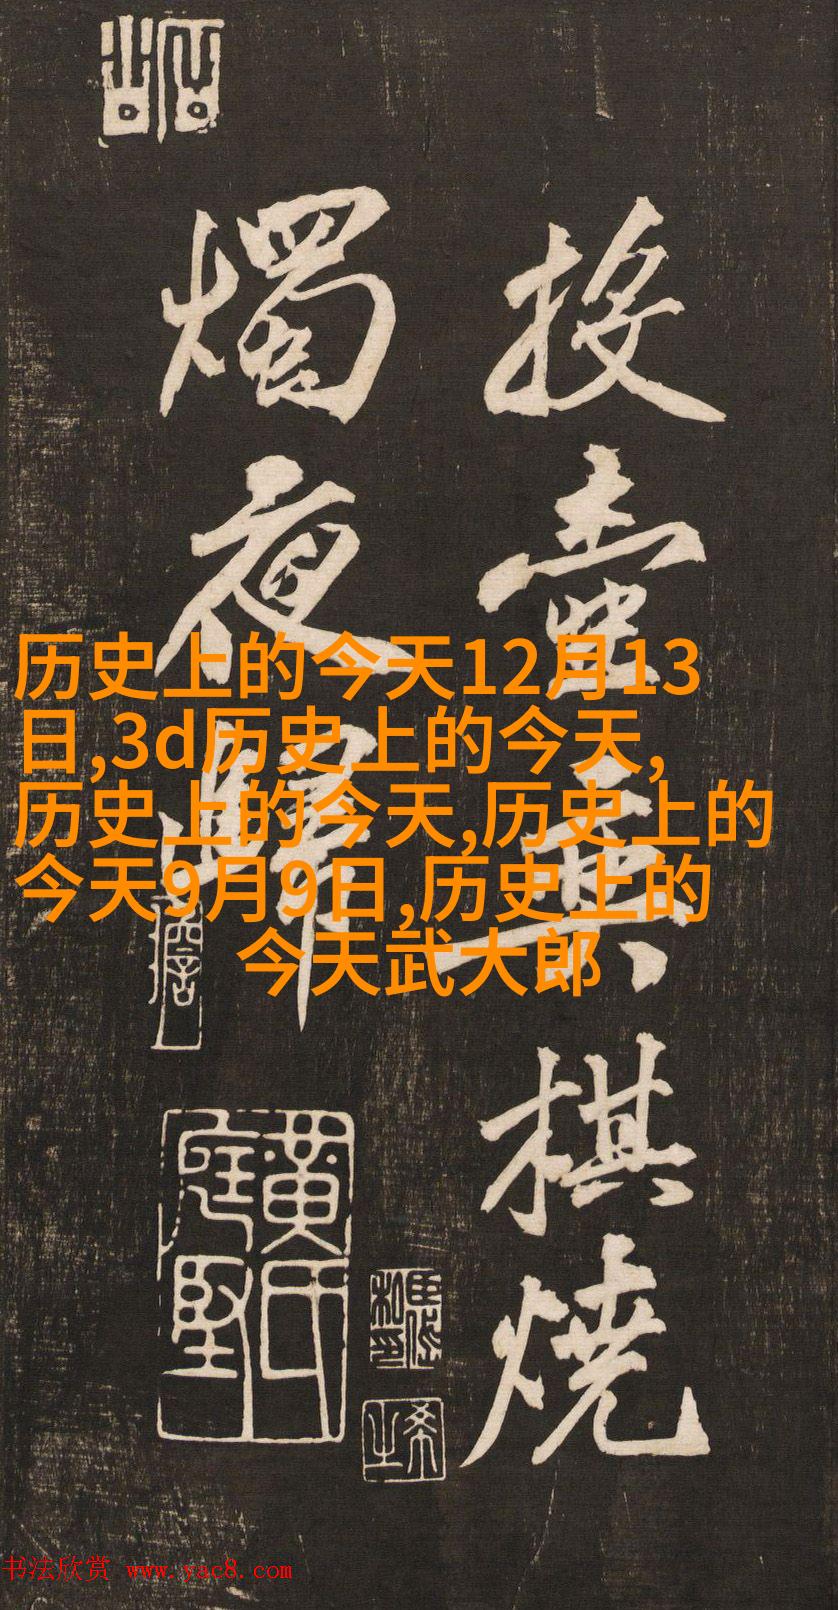 投壺與棋燒
燭夜歸
历史上的今天12月13
日,3d历史上的今天,
历史上的今天,历史上的
今天9月9日,历史上的
今天武大郎
黃氏
庭堅
书法欣赏 www.yac8.com